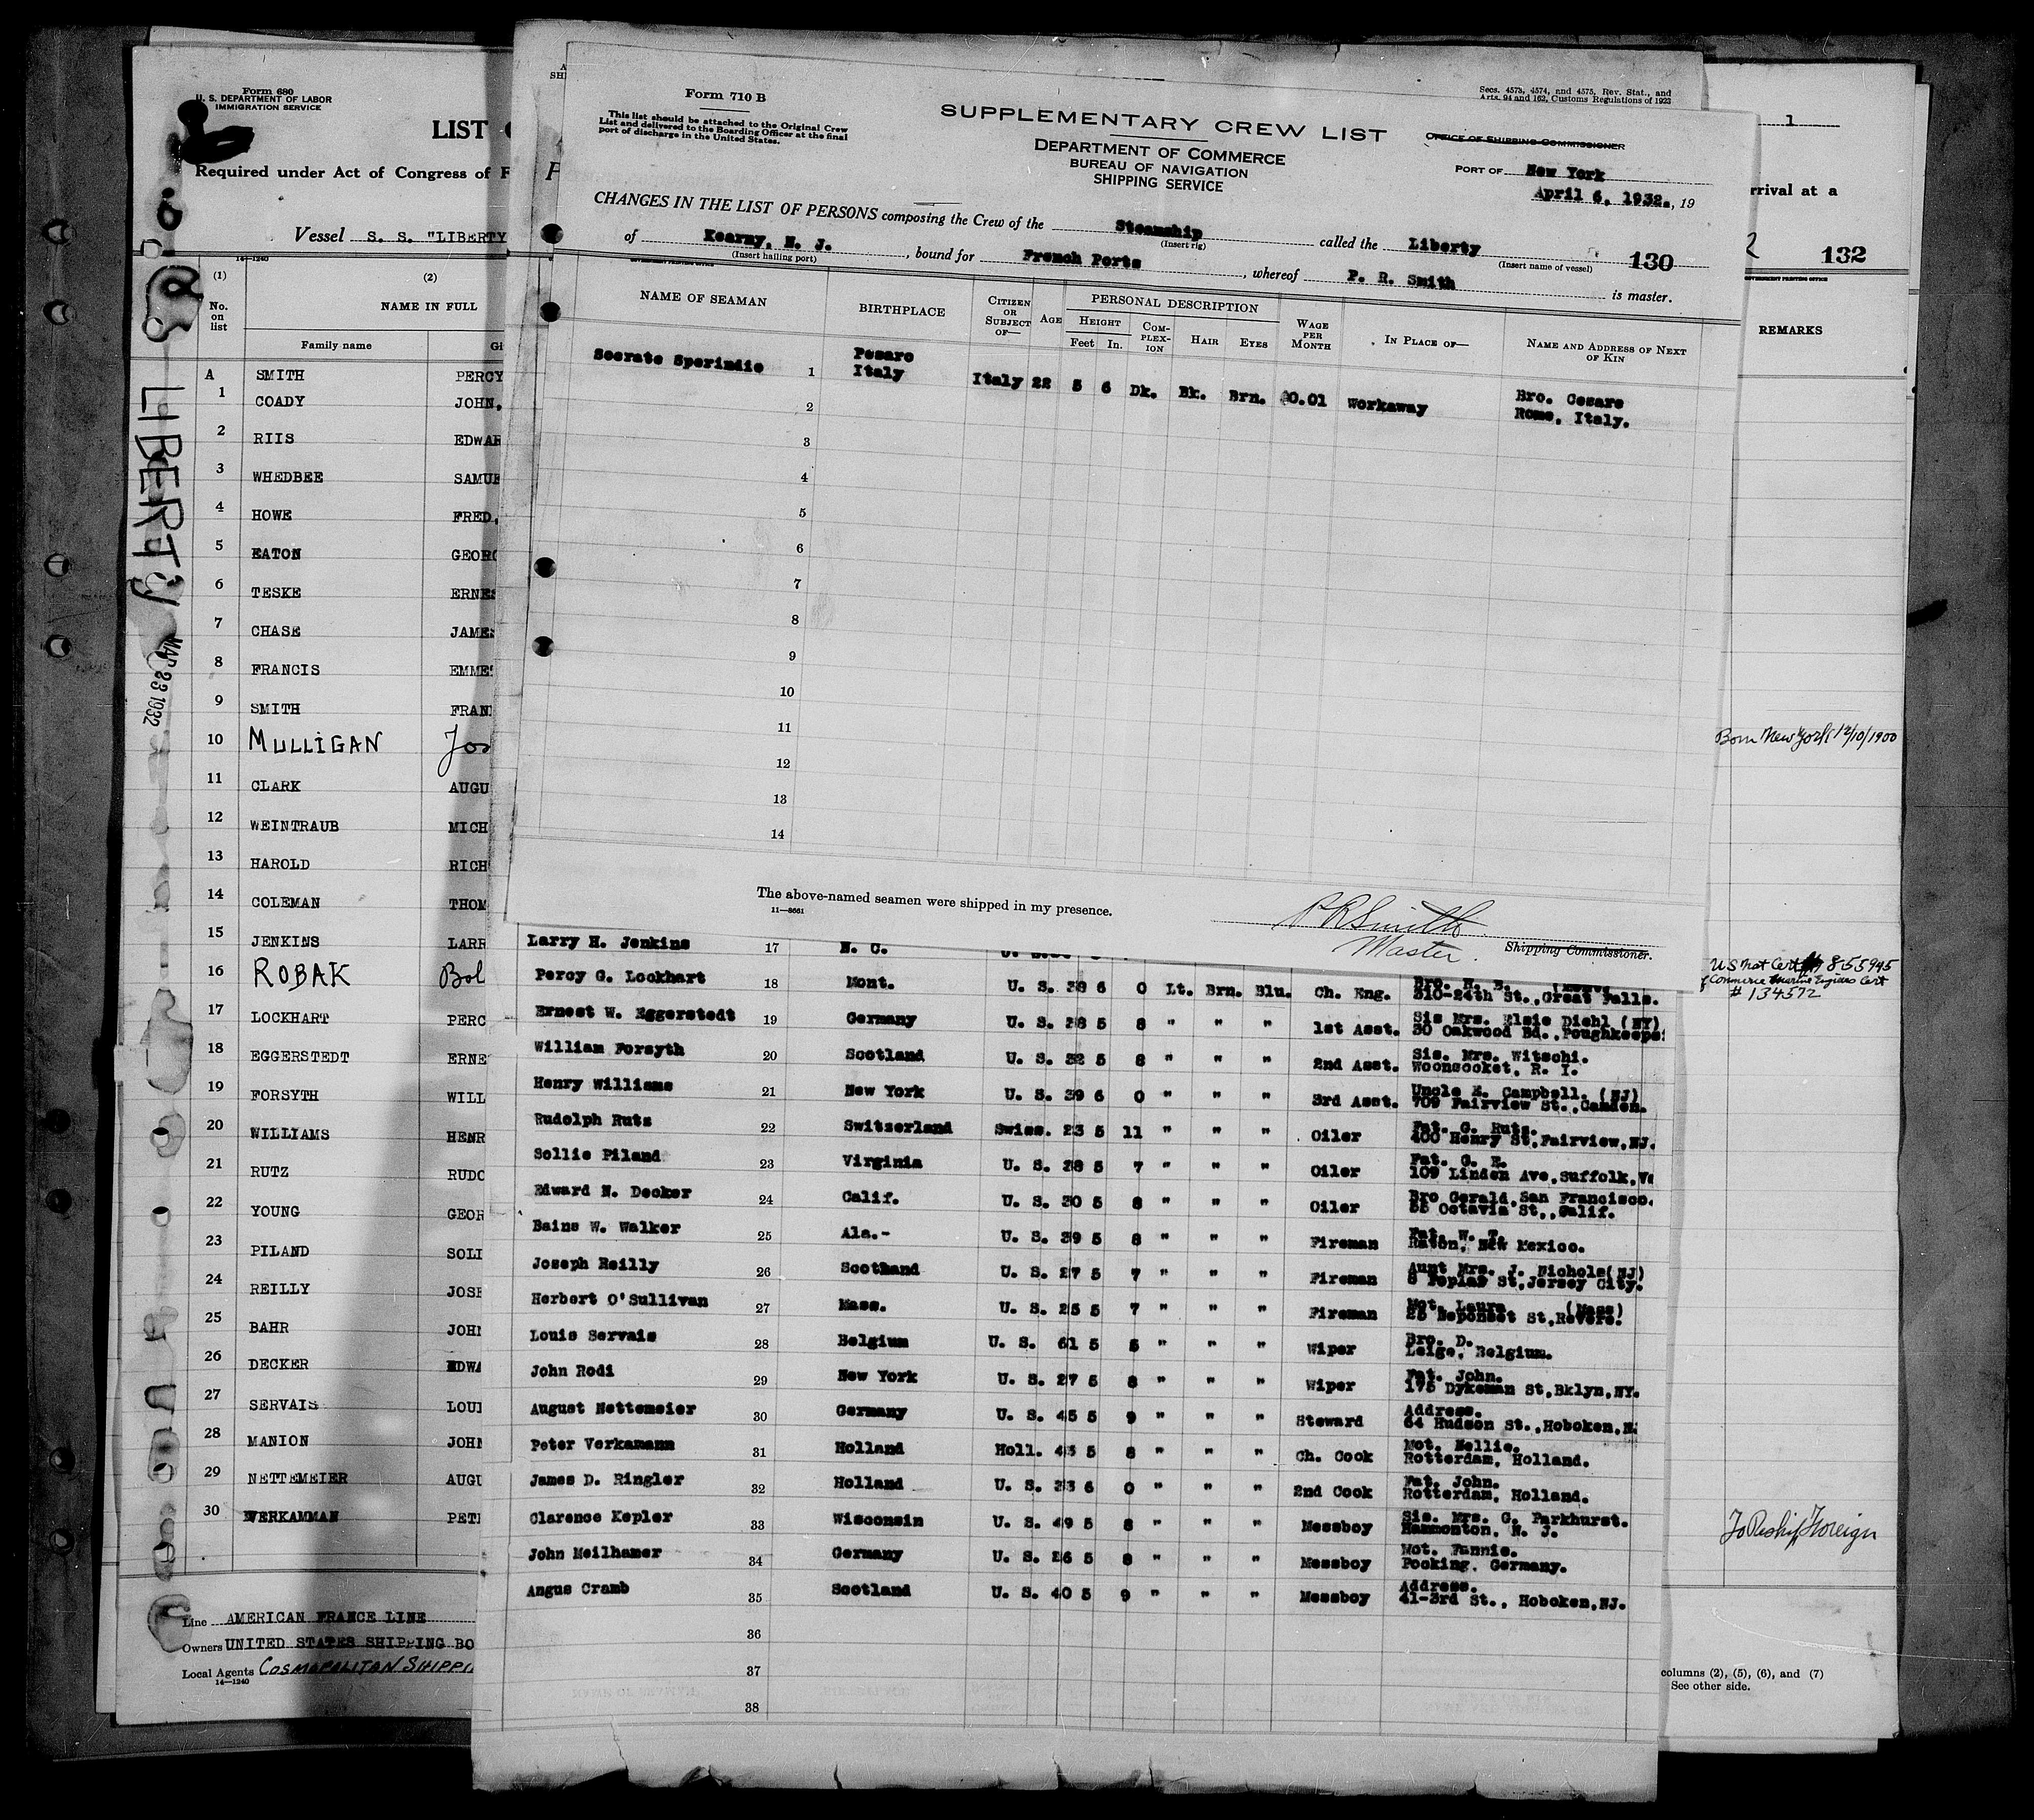 Form 680
U. S. DEPARTMENT OF LABOR
IMMIGRATION SERVICE
LIST
Required under Act of Congress of F
Vessel S. S. "LIBERTY
14-1240
(1)
(2)
No. on list
NAME IN FULL
Family name
Gi
A SMITH PERCY
1 COADY JOHN,
2 RIIS EDWAR
3 WHEDBEE SAMUE
4 HOWE FRED,
5 EATON GEORG
6 TESKE ERNES
7 CHASE JAMES
8 FRANCIS EMME
9 SMITH FRAN
10 MULLIGAN Jos
11 CLARK AUGU
12 WEINTRAUB MICH
13 HAROLD RICH
14 COLEMAN THOM
15 JENKINS LARR
16 ROBAK Bol
17 LOCKHART PERC
18 EGGERSTEDT ERNE
19 FORSYTH WILL
20 WILLIAMS HENR
21 RUTZ RUDO
22 YOUNG GEOR
23 PILAND SOLI
24 REILLY JOSE
25 BAHR JOHN
26 DECKER EDWA
27 SERVAIS LOUI
28 MANION JOHN
29 NETTEMEIER AUGU
30 VERKAMMAN PETE
Line AMERICAN FRANCE LINE
Owners UNITED STATES SHIPPING BO
Local Agents COSMOPOLITAN SHIPPI
14-1240
LIBERTY
MAR 23 1932
Form 710 B
This list should be attached to the Original Crew
List and delivered to the Boarding Officer at the final
port of discharge in the United States.
SUPPLEMENTARY CREW LIST
DEPARTMENT OF COMMERCE
BUREAU OF NAVIGATION
SHIPPING SERVICE
Secs. 4573, 4574, and 4575, Rev. Stat., and
Arts. 94 and 162, Customs Regulations of 1923
OFFICE OF SHIPPING COMMISSIONER
PORT OF New York
April 6, 1932., 19
CHANGES IN THE LIST OF PERSONS composing the Crew of the Steamship called the Liberty
(Insert rig)
(Insert name of vessel)
130
of Kearny, N. J., bound for French Ports, whereof P. R. Smith is master.
(Insert hailing port)
NAME OF SEAMAN
BIRTHPLACE
CITIZEN OR SUBJECT OF—
AGE
PERSONAL DESCRIPTION
HEIGHT
Feet In.
COM-PLEX-ION
HAIR
EYES
WAGE PER MONTH
IN PLACE OF—
NAME AND ADDRESS OF NEXT OF KIN
Socrate Sperindio 1 Pesaro Italy Italy 22 5 6 Dk. Bk. Brn. $0.01 Workaway Bro. Cesare Rome, Italy.
2
3
4
5
6
7
8
9
10
11
12
13
14
The above-named seamen were shipped in my presence.
11—8661
P R Smith
Master. Shipping Commissioner.
Larry H. Jenkins 17 N. C.
Percy G. Lockhart 18 Mont. U. S. 38 6 0 Lt. Brn. Blu. Ch. Eng. Bro. H. B. 310-24th St., Great Falls.
Ernest W. Eggerstedt 19 Germany U. S. 38 5 8 " " " 1st Asst. Sis Mrs. Elsie Diehl (NY) 30 Oakwood Bd., Poughkeeps
William Forsyth 20 Scotland U. S. 32 5 8 " " " 2nd Asst. Sis. Mrs. Witschi. Woonsocket, R. I.
Henry Williams 21 New York U. S. 39 6 0 " " " 3rd Asst. Uncle E. Campbell. (NJ) 709 Fairview St., Camden.
Rudolph Rutz 22 Switzerland Swiss. 23 5 11 " " " Oiler Fat. G. Rutz. 400 Henry St, Fairview, NJ.
Sollie Piland 23 Virginia U. S. 28 5 7 " " " Oiler Fat. G. R. 109 Linden Ave, Suffolk, Va
Edward N. Decker 24 Calif. U. S. 30 5 8 " " " Oiler Bro Gerald, San Francisco. 55 Octavia St., Calif.
Bains W. Walker 25 Ala.- U. S. 39 5 8 " " " Fireman Fat. W. T. Raton, New Mexico.
Joseph Reilly 26 Scotland U. S. 27 5 7 " " " Fireman Aunt Mrs. J. Nichols(NJ) 8 Poplar St, Jersey City.
Herbert O'Sullivan 27 Mass. U. S. 25 5 7 " " " Fireman Mot. Laura (Mass) 25 Neponset St, Revere.
Louis Servais 28 Belgium U. S. 61 5 5 " " " Wiper Bro. D. Leige, Belgium.
John Rodi 29 New York U. S. 27 5 8 " " " Wiper Fat. John. 175 Dykeman St, Bklyn, NY.
August Nettemeier 30 Germany U. S. 45 5 9 " " " Steward Address. 64 Hudson St., Hoboken, N.
Peter Verkamann 31 Holland Holl. 43 5 8 " " " Ch. Cook Mot. Nellie. Rotterdam, Holland.
James D. Ringler 32 Holland U. S. 33 6 0 " " " 2nd Cook Fat. John. Rotterdam, Holland.
Clarence Kepler 33 Wisconsin U. S. 49 5 8 " " " Messboy Sis. Mrs. G. Parkhurst. Hammonton, N. J.
John Meilhamer 34 Germany U. S. 26 5 8 " " " Messboy Mot. Fannie. Pocking, Germany.
Angus Cramb 35 Scotland U. S. 40 5 9 " " " Messboy Address. 41-3rd St., Hoboken, NJ.
36
37
38
1
rrival at a
132
GOVERNMENT PRINTING OFFICE
REMARKS
Born New York 12/10/1900
US Nat Cert # 855945
of Commerce Marine Engines Cert
# 134572
To Reship Foreign
columns (2), (5), (6), and (7)
See other side.